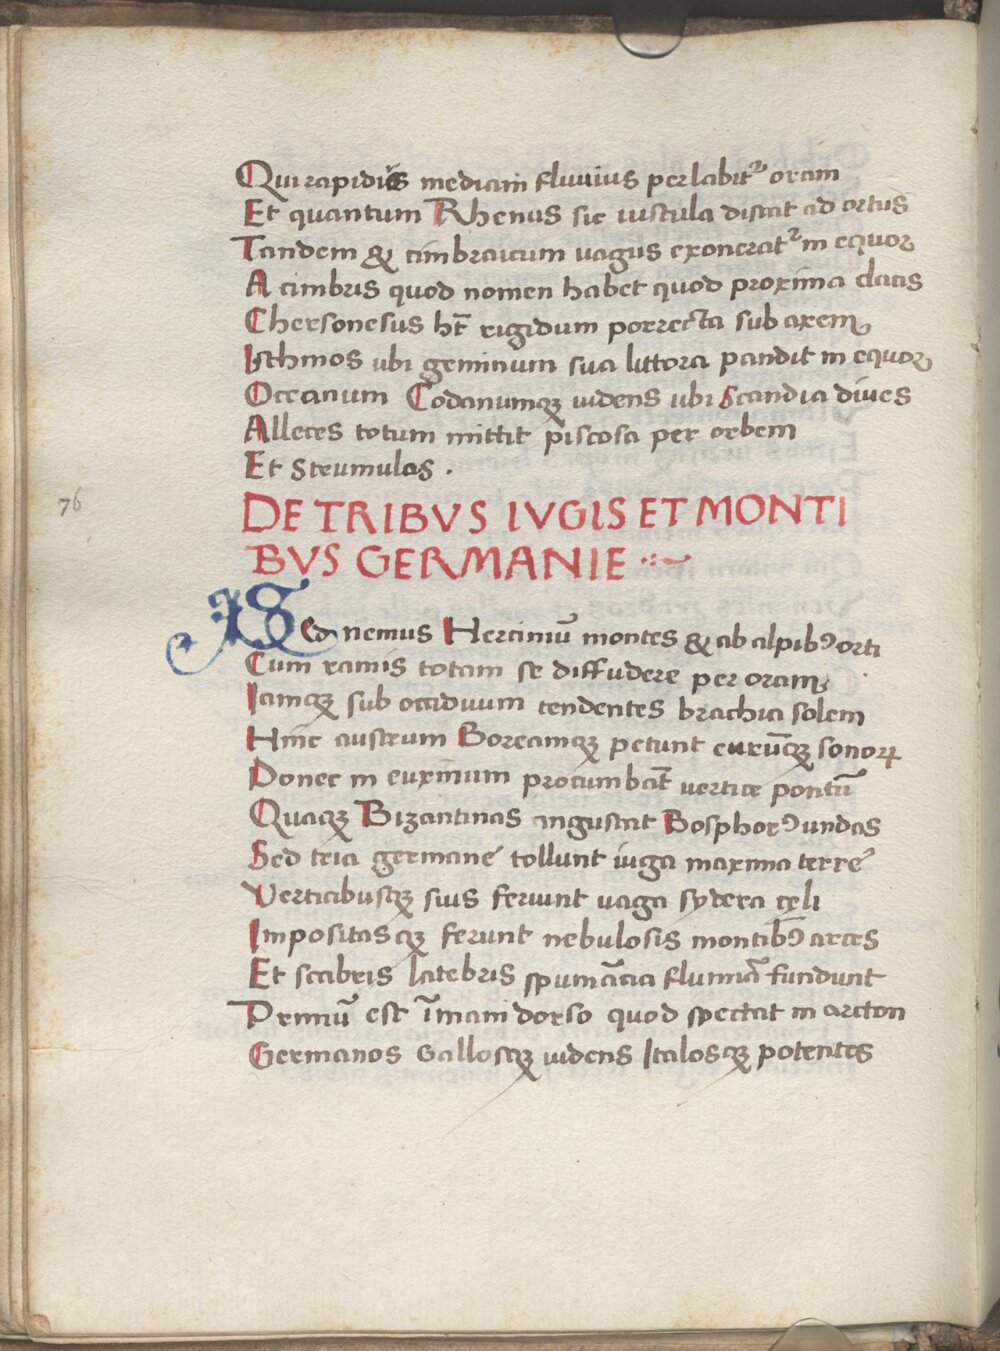 Qui rapidus mediam fluuius perlabit᷑ oram
Et quantum Rhenus sic uistula distat ad ortus
Tandem & cimbraicum uagus exonerat᷑ in equor
A cimbris quod nomen habet quod proxima dacis
Chersonesus ht̄ rigidum porrecta sub axem
Isthmos ubi geminum sua littora pandit in equor
Occanum Codanumqꝫ uidens ubi Scandia diues
Alleces totum mittit piscosa per orbem
Et Streumulos .
76
DE TRIBVS IVGIS ET MONTI
BVS GERMANIE
Sed nemus Herciniū montes & ab alpibꝰ orti
Cum ramis totam se diffudere per oram
Iamqꝫ sub occiduum tendentes brachia solem
Hinc austrum Boreamqꝫ petunt eurūqꝫ sonoꝝ
Donec in euxinum procumbāt uertice pontū
Quaqꝫ Bizantinas angustat Bosphorꝰ undas
Sed tria germanę tollunt iuga maxima terrę
Verticibusqꝫ suis feriunt uaga sydera cęli
Impositasqꝫ ferunt nebulosis montibꝰ arces
Et scabris latebris spumātia flumīa fundunt
Primū est īmani dorso quod spectat in arcton
Germanos Gallosqꝫ uidens Italosqꝫ potentes